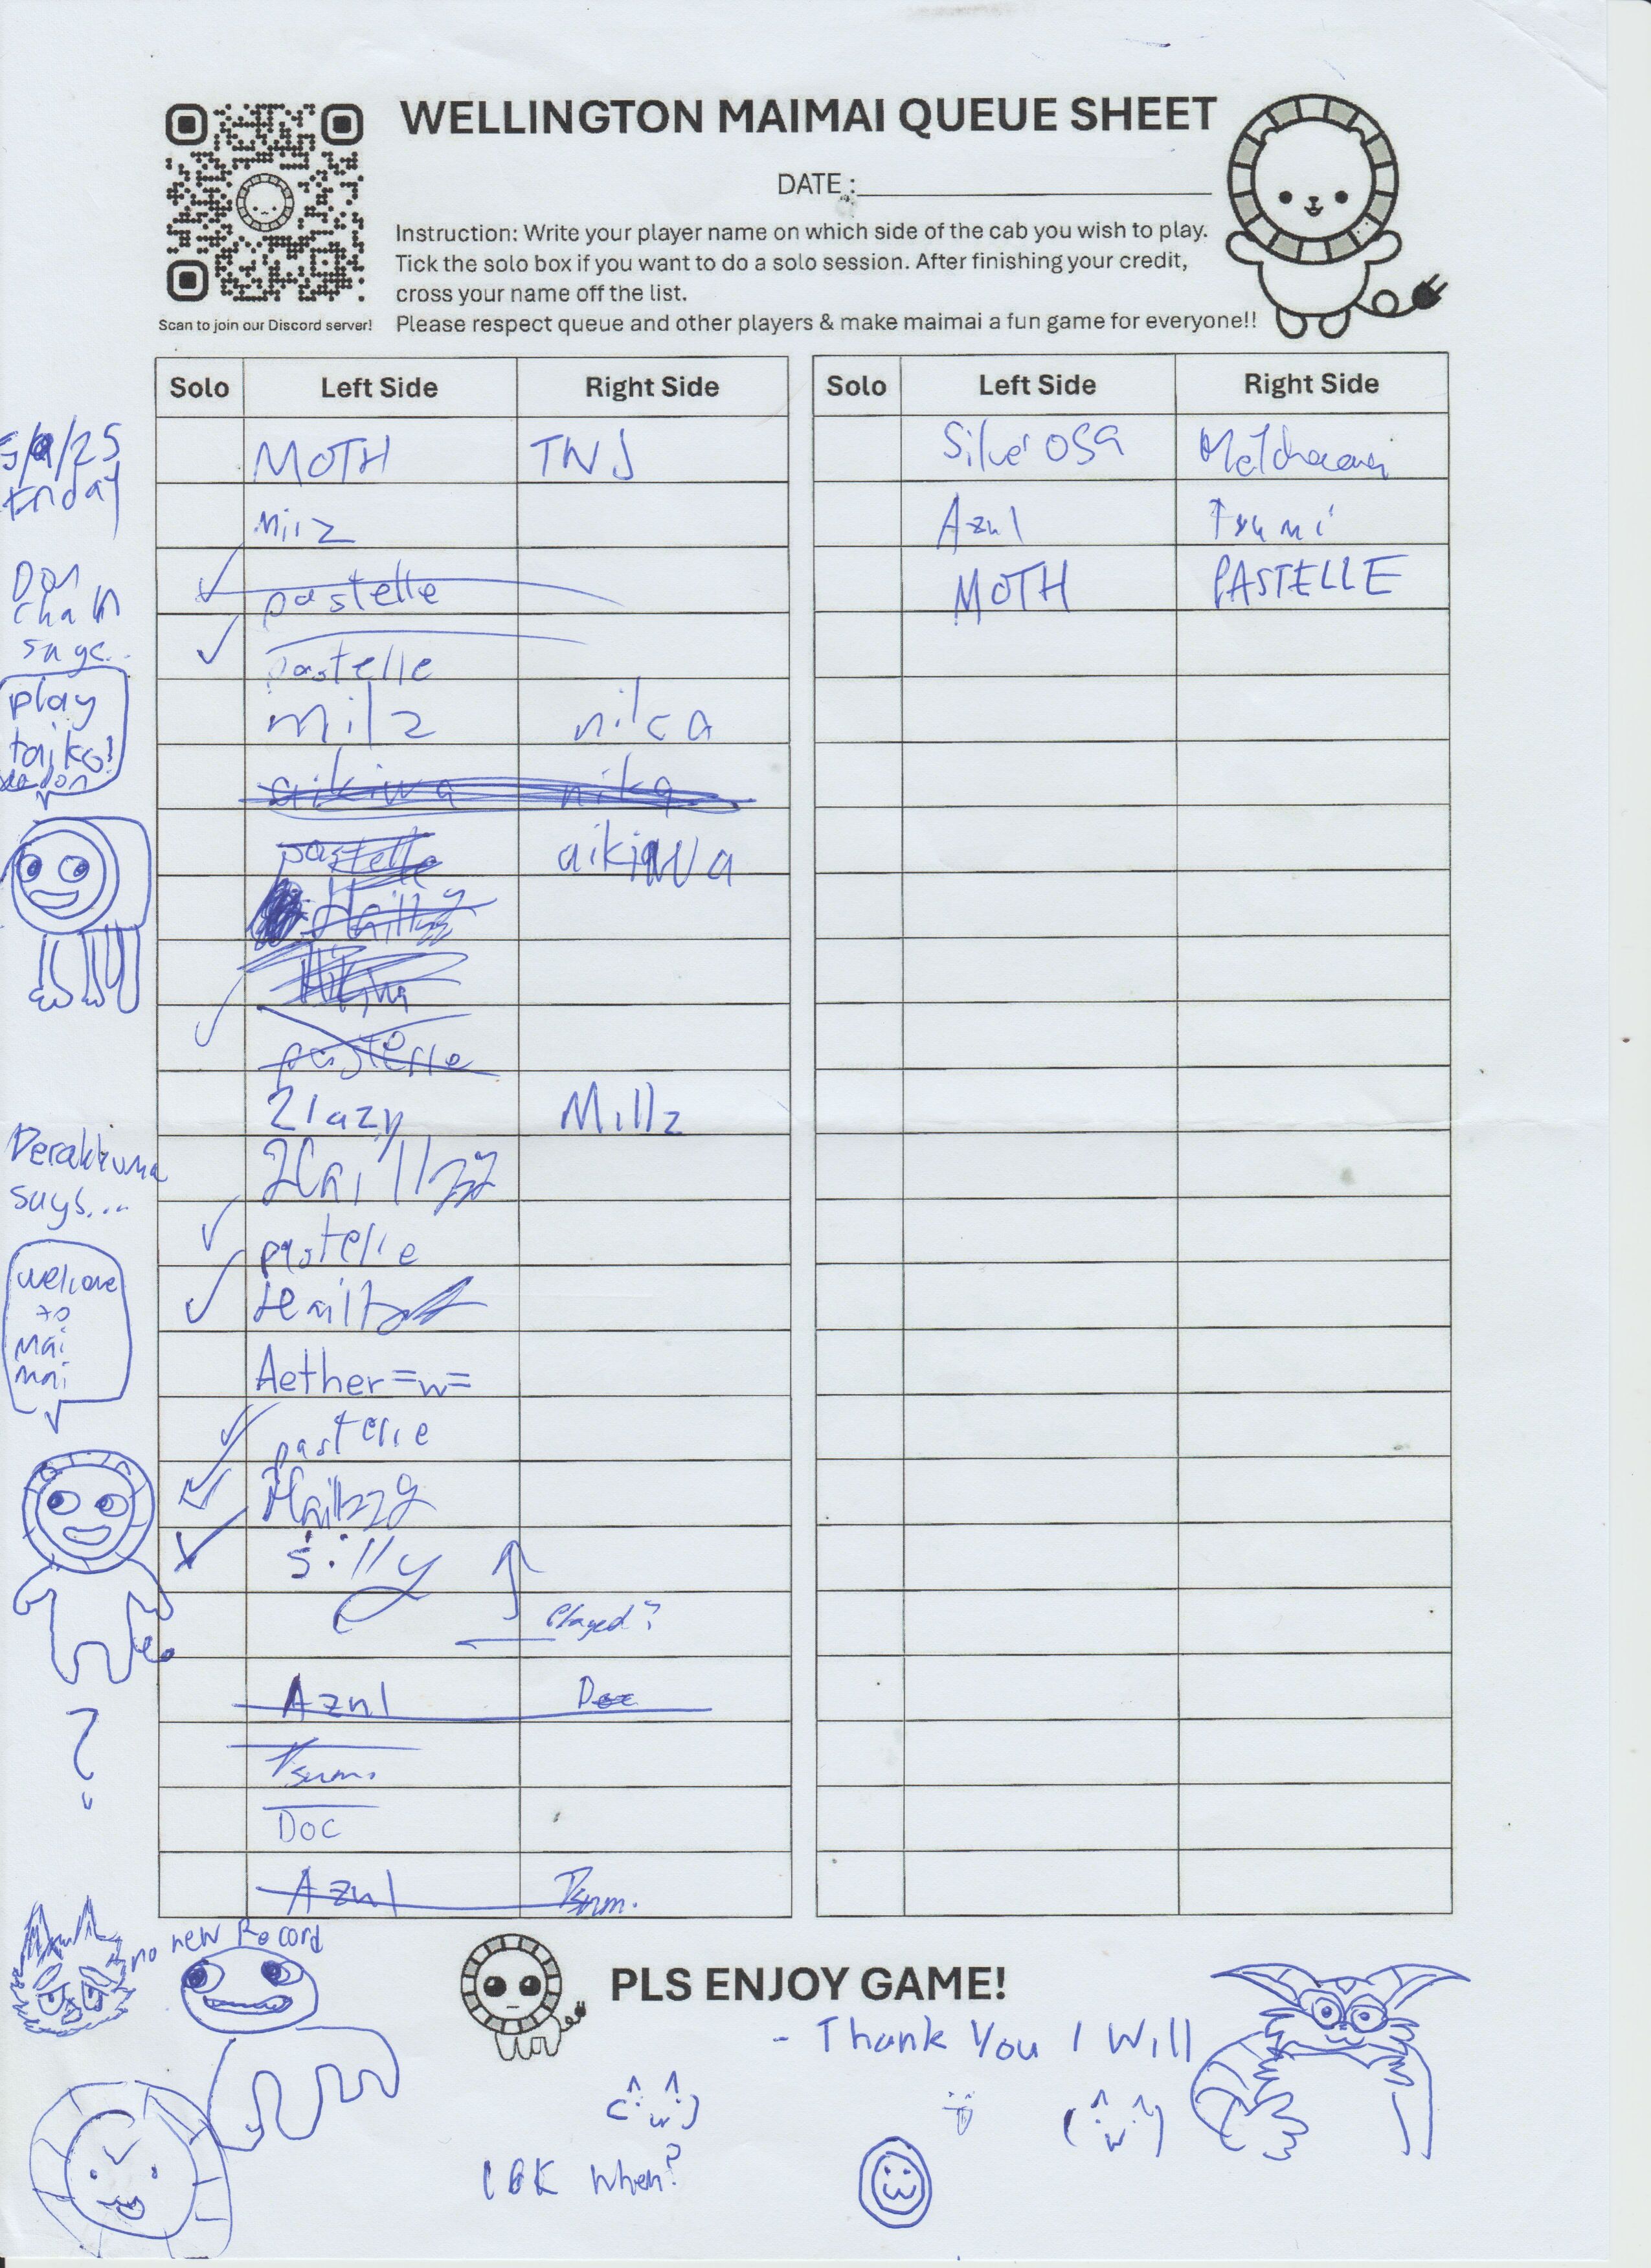 WELLINGTON MAIMAI QUEUE SHEET
DATE :
Instruction: Write your player name on which side of the cab you wish to play.
Tick the solo box if you want to do a solo session. After finishing your credit,
cross your name off the list.
Please respect queue and other players & make maimai a fun game for everyone!!
Scan to join our Discord server!
Solo Left Side Right Side
MOTH TNJ
Milz
pastelle
pastelle
milz nika
aikiwa nika
pastelle aikiwa
Hailzy
pastelle
2lazy Millz
pastelle
Aether=w=
pastelle
silly
Played?
Azul Doc
Tsumi
Doc
Azul Tsumi
Solo Left Side Right Side
Silver059
Azul Tsumi
MOTH PASTELLE
5/9/25
Friday
Don
chan
says...
play
taiko!
Derakkuma
says...
welcome
to
mai
mai
?
no new Record
PLS ENJOY GAME!
- Thank You I Will
16K when?